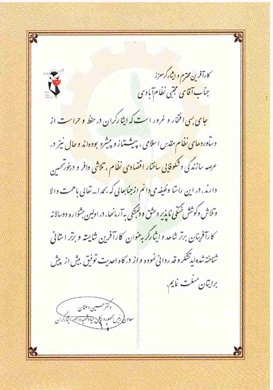 کارآفرین محترم و ایثارگر عزیز
جناب آقای مجتبی نظام‌آبادی
جای بسی افتخار و غرور است که ایثارگران در حفظ و حراست از
دستاوردهای نظام مقدس اسلامی، پیشتاز و پیشرو بوده‌اند و حال نیز در
عرصه سازندگی و شکوفایی ساختار اقتصادی نظام، تلاشی وافر و درخور تحسین
دارند. در این راستا وظیفه‌ی دانم از جنابعالی که بحمدا... تعالی با همت والا
و تلاش و کوشش خستگی ناپذیر و عشق و دلبستگی به آرمانها، در اولین جشنواره دوسالانه
کارآفرینان برتر شاهد و ایثارگر به عنوان کارآفرین شایسته و برتر استانی
شناخته شده‌اید تشکر و قدردانی نموده و از درگاه احدیت توفیق بیش از پیش
برایتان مسئلت نمایم.
دکتر حسین دهقان
معاون رئیس جمهور و